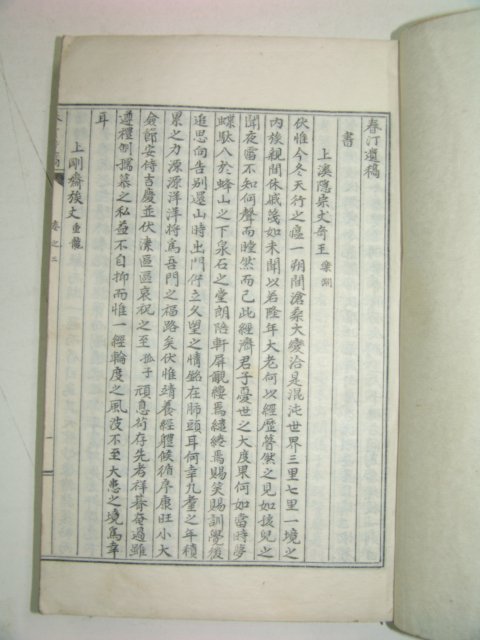 春汀遺稿
書
上溪隱宗丈奇王 樂淵
伏惟今冬天行之瘟一朔間滄桑大變洽是混沌世界三里七里一境之
內族親間休戚箋如未聞以若隆年大老何以經歷瞥然之見如孩兒之
聞夜雷不知何聲而瞠然而已此經濟君子憂世之大度果何如當時夢
蝶馱人於蜂山之下泉石之堂朗陪軒屏覶縷焉繾綣焉賜笑賜訓學後
追思向告別還山時出門佇立久望之情銘在肺頭耳何幸九耋之年積
累之力源源洋洋將爲吾門之福路矣伏惟靖養經體候循序康旺小大
僉節安侍吉慶並伏溸區區哀祝之至孤子頑息苟存先考祥朞奄過雖
遵禮制孺慕之私益不自抑而惟一經輪度之風波不至大患之境爲幸
耳
上剛齋族丈 重龍
卷之二
一